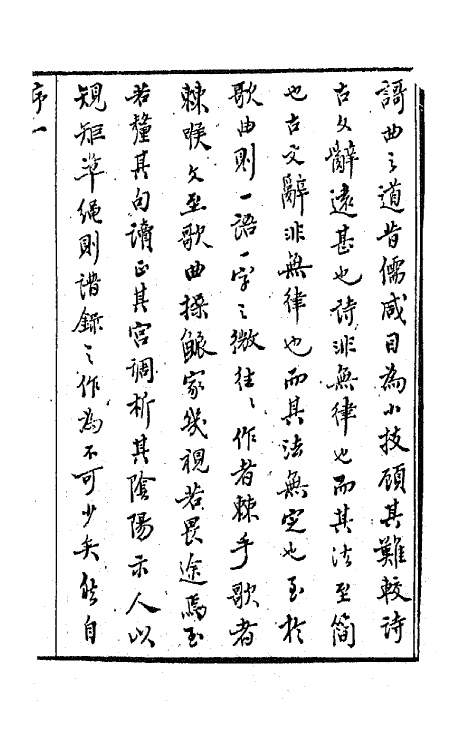 謌曲之道昔儒咸目為小技顧其難較詩
古文辭遠甚也詩非無律也而其法至簡
也古文辭非無律也而其法無定也至於
歌曲則一語一字之微往〻作者棘手歌者
棘喉文至歌曲操觚家幾視若畏途焉至
若釐其句讀正其宮調析其陰陽示人以
規矩準繩則譜錄之作為不可少矣然自
序一